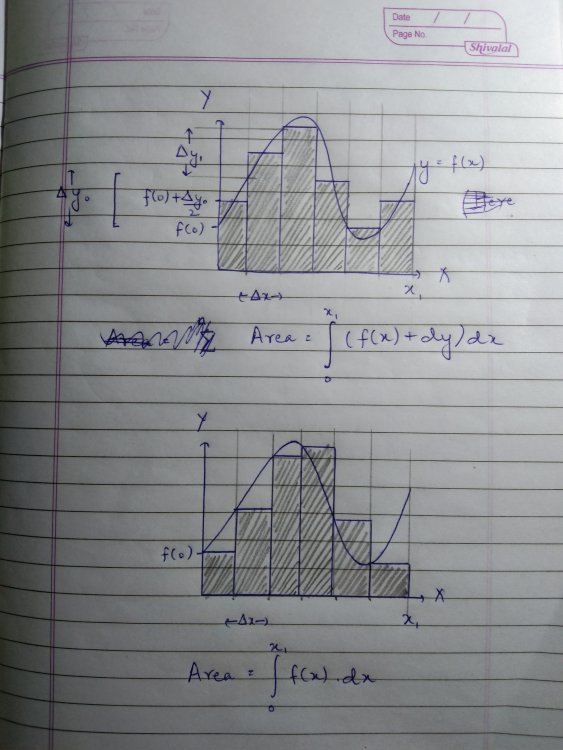 Date / /
Page No.
Shivalal
Y
Δy₁
y = f(x)
Δy₀
f(0) + Δy₀/2
f(0)
X
x₁
←Δx→
Area = ∫₀^x₁ (f(x) + dy) dx
Y
f(0)
X
←Δx→
x₁
Area = ∫₀^x₁ f(x) . dx